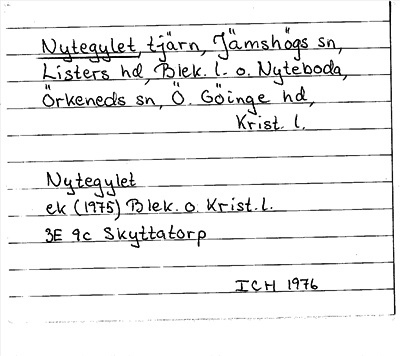 Nytegylet, tjärn, Jämshögs sn,
Listers hd, Blek. l. o. Nyteboda,
Örkeneds sn, Ö. Göinge hd,
Krist. l.
Nytegylet
ek (1975) Blek. o. Krist. l.
3E 9c Skyttatorp
ICH 1976